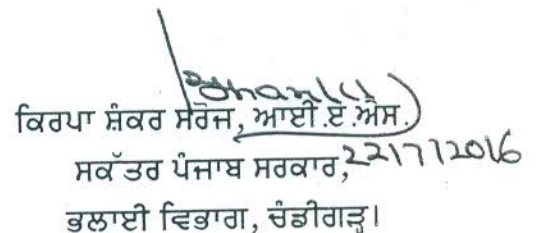 ਕਿਰਪਾ ਸ਼ੰਕਰ ਸਰੋਜ, ਆਈ.ਏ.ਐਸ.
ਸਕੱਤਰ ਪੰਜਾਬ ਸਰਕਾਰ, 22/7/2016
ਭਲਾਈ ਵਿਭਾਗ, ਚੰਡੀਗੜ੍ਹ।